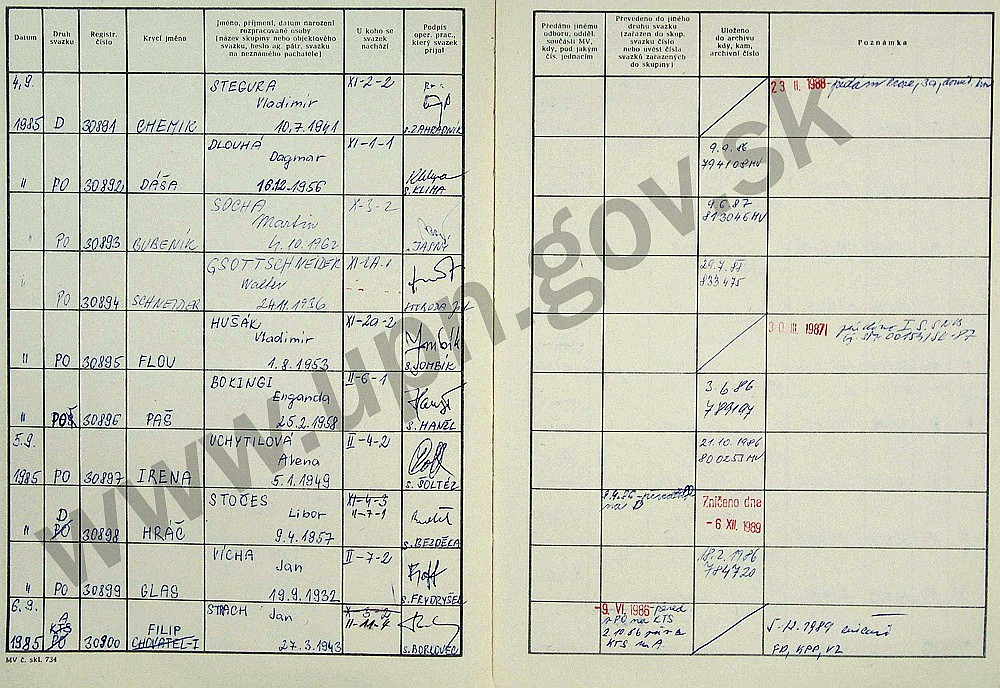 Datum
Druh svazku
Registr. číslo
Krycí jméno
Jméno, příjmení, datum narození
rozpracované osoby
(název skupiny nebo objektového
svazku, heslo ag. pátr. svazku
na neznámého pachatele)
U koho se
svazek
nachází
Podpis
oper. prac.,
který svazek
přijal
Předáno jinému
odboru, odděl.
součásti MV,
kdy, pod jakým
čís. jednacím
Převedeno do jiného
druhu svazku
(zařazen do skup.
svazku číslo
nebo uvést čísla
svazků zařazených
do skupiny)
Uloženo
do archivu
kdy, kam,
archivní číslo
Poznámka
4.9. STEGURA XI-2-2 23 II. 1988
Vladimír
1985 D 30891 CHEMIK 10.7.1941 s.ZAHRADNÍK
DLOUHÁ XI-1-1
Dagmar 794108MV
" PO 30892 DÁŠA 16.12.1956 s.KLIMA
SOCHA X-3-2 9.6.87
Martin 813046MV
" PO 30893 BUBENÍK 4.10.1962 JASNÝ
GSOTTSCHNEIDER XI-2A-1
Walter 833475
" PO 30894 SCHNEIDER 24.11.1936
HUŠÁK XI-2a-2 30 III. 1987
Vladimír
" PO 30895 FLOU 1.8.1953 s.JOMBÍK
BOKINGI II-6-1 3.6.86
Enganda
" PO 30896 PAŠ 25.2.1958 s.HANĚL
5.9. UCHYTILOVÁ II-4-2 21.10.1986
Alena 800253MV
1985 PO 30897 IRENA 5.1.1949 s.ŠOLTÉZ
STOČES XI-4-3 Zničeno dne
D Libor II-7-1 na D -6 XII. 1989
" PO 30898 HRÁČ 9.4.1957 s.BEZDĚKA
VÍCHA II-7-2 18.2.1986
Jan 784720
" PO 30899 GLAS 19.9.1932 s.FRYDRYŠEK
6.9. STRACH X-3-2 -9. VI. 1986
A Jan II-11-4 na KTS
KTS FILIP 5.12.1989
1985 PO 30900 CHOVATEL-I 27.3.1943 s.BORLOVEC KTS na A
MV č. skl. 734
www.upn.gov.sk